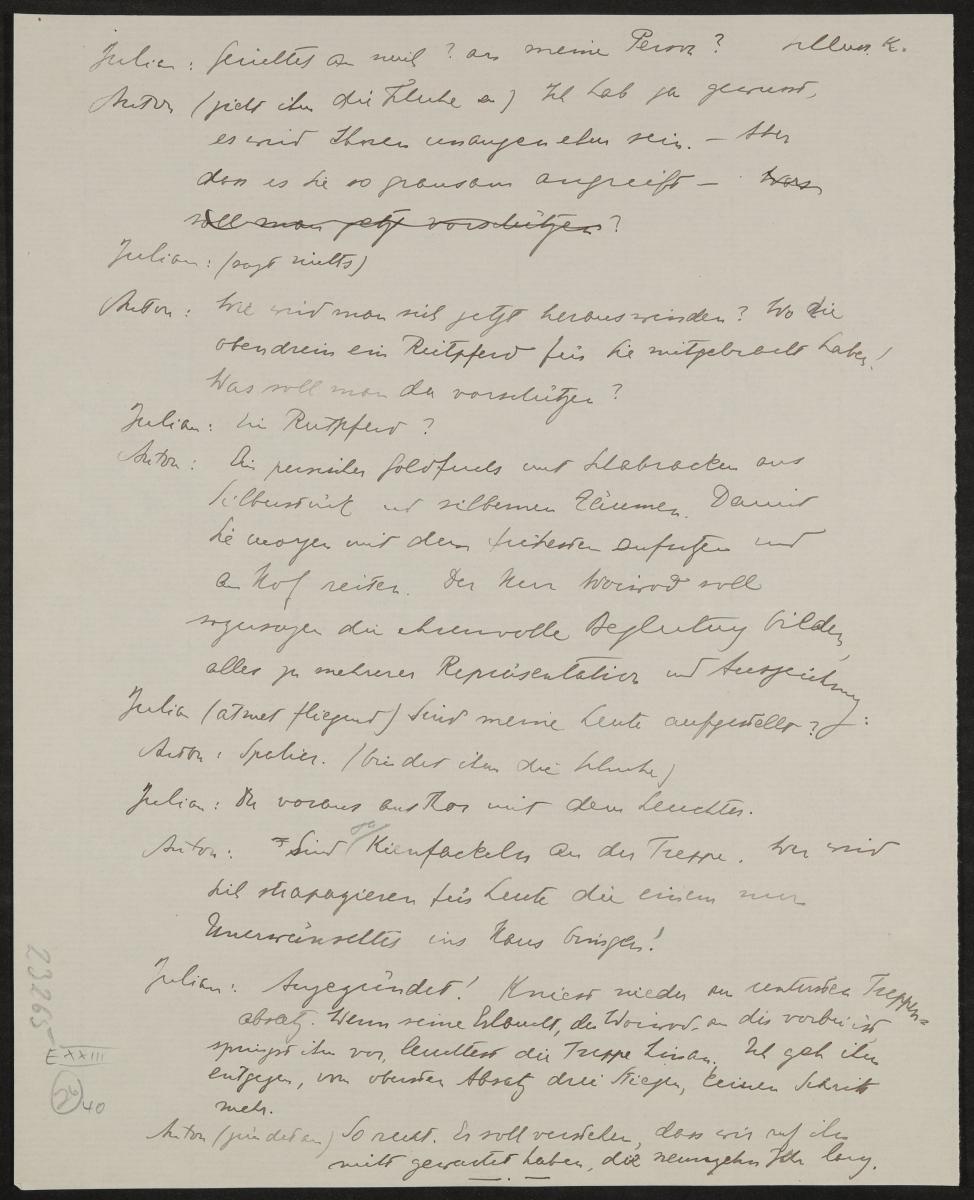 Julian: Gerichtet an mich? an meine Person?
Anton (zieht ihm die Schuhe an) Ich hab ja gewusst,
es wird Ihnen unangenehm sein. – Aber
dass es Sie so grausam angreift – Was
soll man jetzt vorschützen?
Julian: (sagt nichts)
Anton: Wie wird man sich jetzt herauswinden? Wo die
obendrein ein Reitpferd für Sie mitgebracht haben!
Was soll man da vorschützen?
Julian: Ein Reitpferd?
Anton: Ein Goldfuchs mit Schabracken aus
Silberstück und silbernen Zäumen. Damit
Sie morgen mit dem frühesten aufsitzen und
an Hof reiten. Der Herr Woiwod soll
sozusagen die ehrenvolle Begleitung bilden,
alles zu mehrerer Repräsentation und Auszeichnung
Julian (atmet fliegend) Sind meine Leute aufgestellt?
Anton: Spalier. (bindet ihm die Schuhe)
Julian: Du voraus ans Thor mit dem Leuchter.
Anton: Sind ja Kienfackeln an der Treppe. Wer wird
sich strapazieren für Leute die einem nur
Unerwünschtes ins Haus bringen!
Julian: Angezündet! Kniest nieder am untersten Treppen=
absatz. Wenn seine Erlaucht, der Woiwod, an dir vorbei ist,
springst ihm vor, leuchtest die Treppe hinan. Ich geh ihm
entgegen, vom obersten Absatz drei Stiegen, keinen Schritt
mehr.
Anton (zündet an) So recht. Er soll verstehen, dass wir auf ihn
nicht gewartet haben, die neunzehn Jahr lang.
23265
E XXIII
26
40